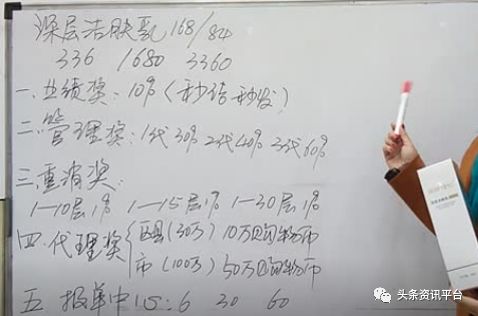 深层洁肤乳 168/84
336 1680 3360
一.业绩奖:10%(秒结秒发)
二.管理奖:1代30% 2代40% 3代60%
三.重消奖:
1—10层1% 1—15层1% 1—30层1%
四.代理奖 区县(30万) 10万
市(100万) 50万
五 报单中心:6 30 60
头条资讯平台